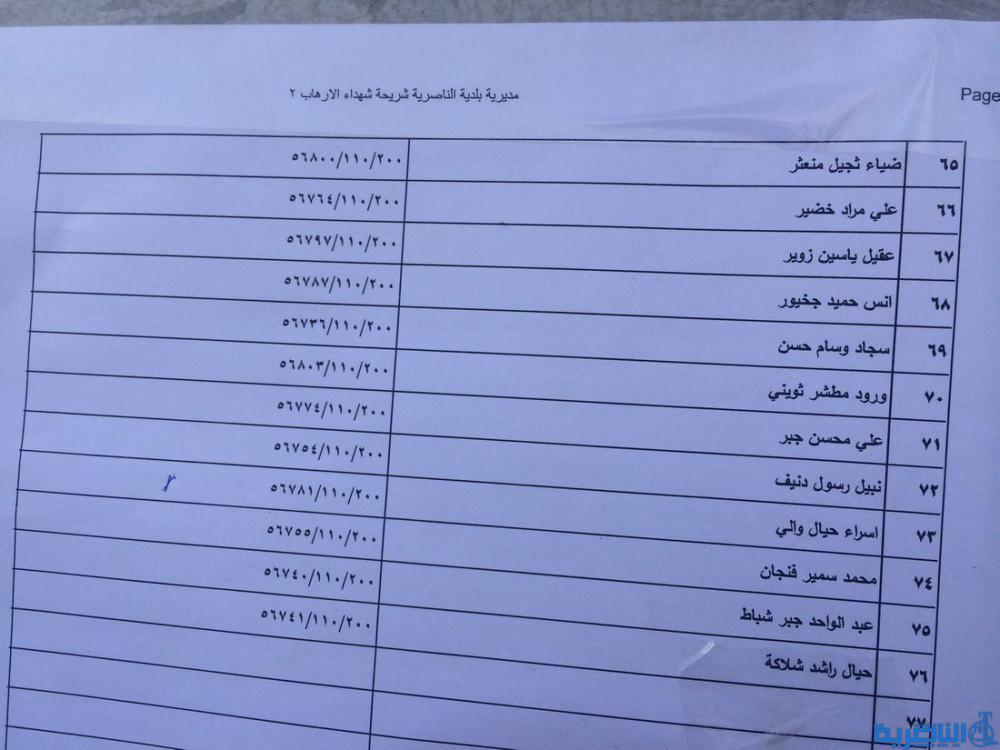 Page
مديرية بلدية الناصرية شريحة شهداء الارهاب ٢
٦٥ ضياء ثجيل منعثر ٥٦٨٠٠/١١٠/٢٠٠
٦٦ علي مراد خضير ٥٦٧٦٤/١١٠/٢٠٠
٦٧ عقيل ياسين زوير ٥٦٧٩٧/١١٠/٢٠٠
٦٨ انس حميد جخيور ٥٦٧٨٧/١١٠/٢٠٠
٦٩ سجاد وسام حسن ٥٦٧٣٦/١١٠/٢٠٠
٧٠ ورود مطشر ثويني ٥٦٨٠٣/١١٠/٢٠٠
٧١ علي محسن جبر ٥٦٧٧٤/١١٠/٢٠٠
٧٢ نبيل رسول دنيف ٥٦٧٥٤/١١٠/٢٠٠
٧٣ اسراء حيال والي ٥٦٧٨١/١١٠/٢٠٠
٧٤ محمد سمير فنجان ٥٦٧٥٥/١١٠/٢٠٠
٧٥ عبد الواحد جبر شباط ٥٦٧٤٠/١١٠/٢٠٠
٧٦ حيال راشد شلاكة ٥٦٧٤١/١١٠/٢٠٠
٧٧
الناصرية